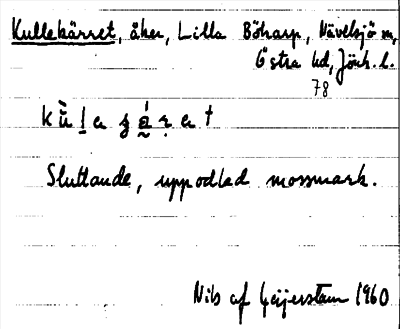 Kullekärret, åker, Lilla Böharp, Hävelsjö sn,
Östra hd, Jönk. l.
78
Sluttande, uppodlad mossmark.
Nils af Geijerstam 1960